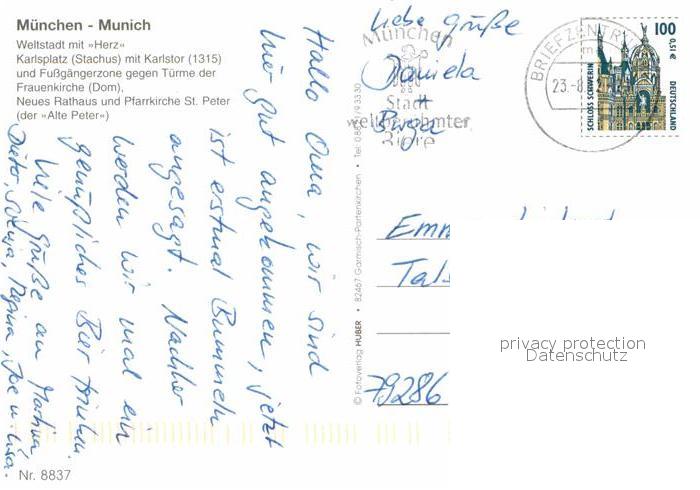 München - Munich
Weltstadt mit »Herz«
Karlsplatz (Stachus) mit Karlstor (1315)
und Fußgängerzone gegen Türme der
Frauenkirche (Dom),
Neues Rathaus und Pfarrkirche St. Peter
(der »Alte Peter«)
Hallo Oma, wir sind
hier gut angekommen, jetzt
ist erstmal Bummeln
angesagt. Nachher
werden wir mal ein
gemütliches Bier trinken.
Viele Grüße an Martina,
Regina, u. Lisa.
Liebe Grüße
Daniela
+
München
Stadt
weltberühmter
Biere
BRIEFZENTR
23.-8.
100
0,51€
SCHLOSS SCHWERIN
DEUTSCHLAND
© Fotoverlag HUBER • 82467 Garmisch-Partenkirchen • Tel.
Emm
Tals
79286
privacy protection
Datenschutz
Nr. 8837